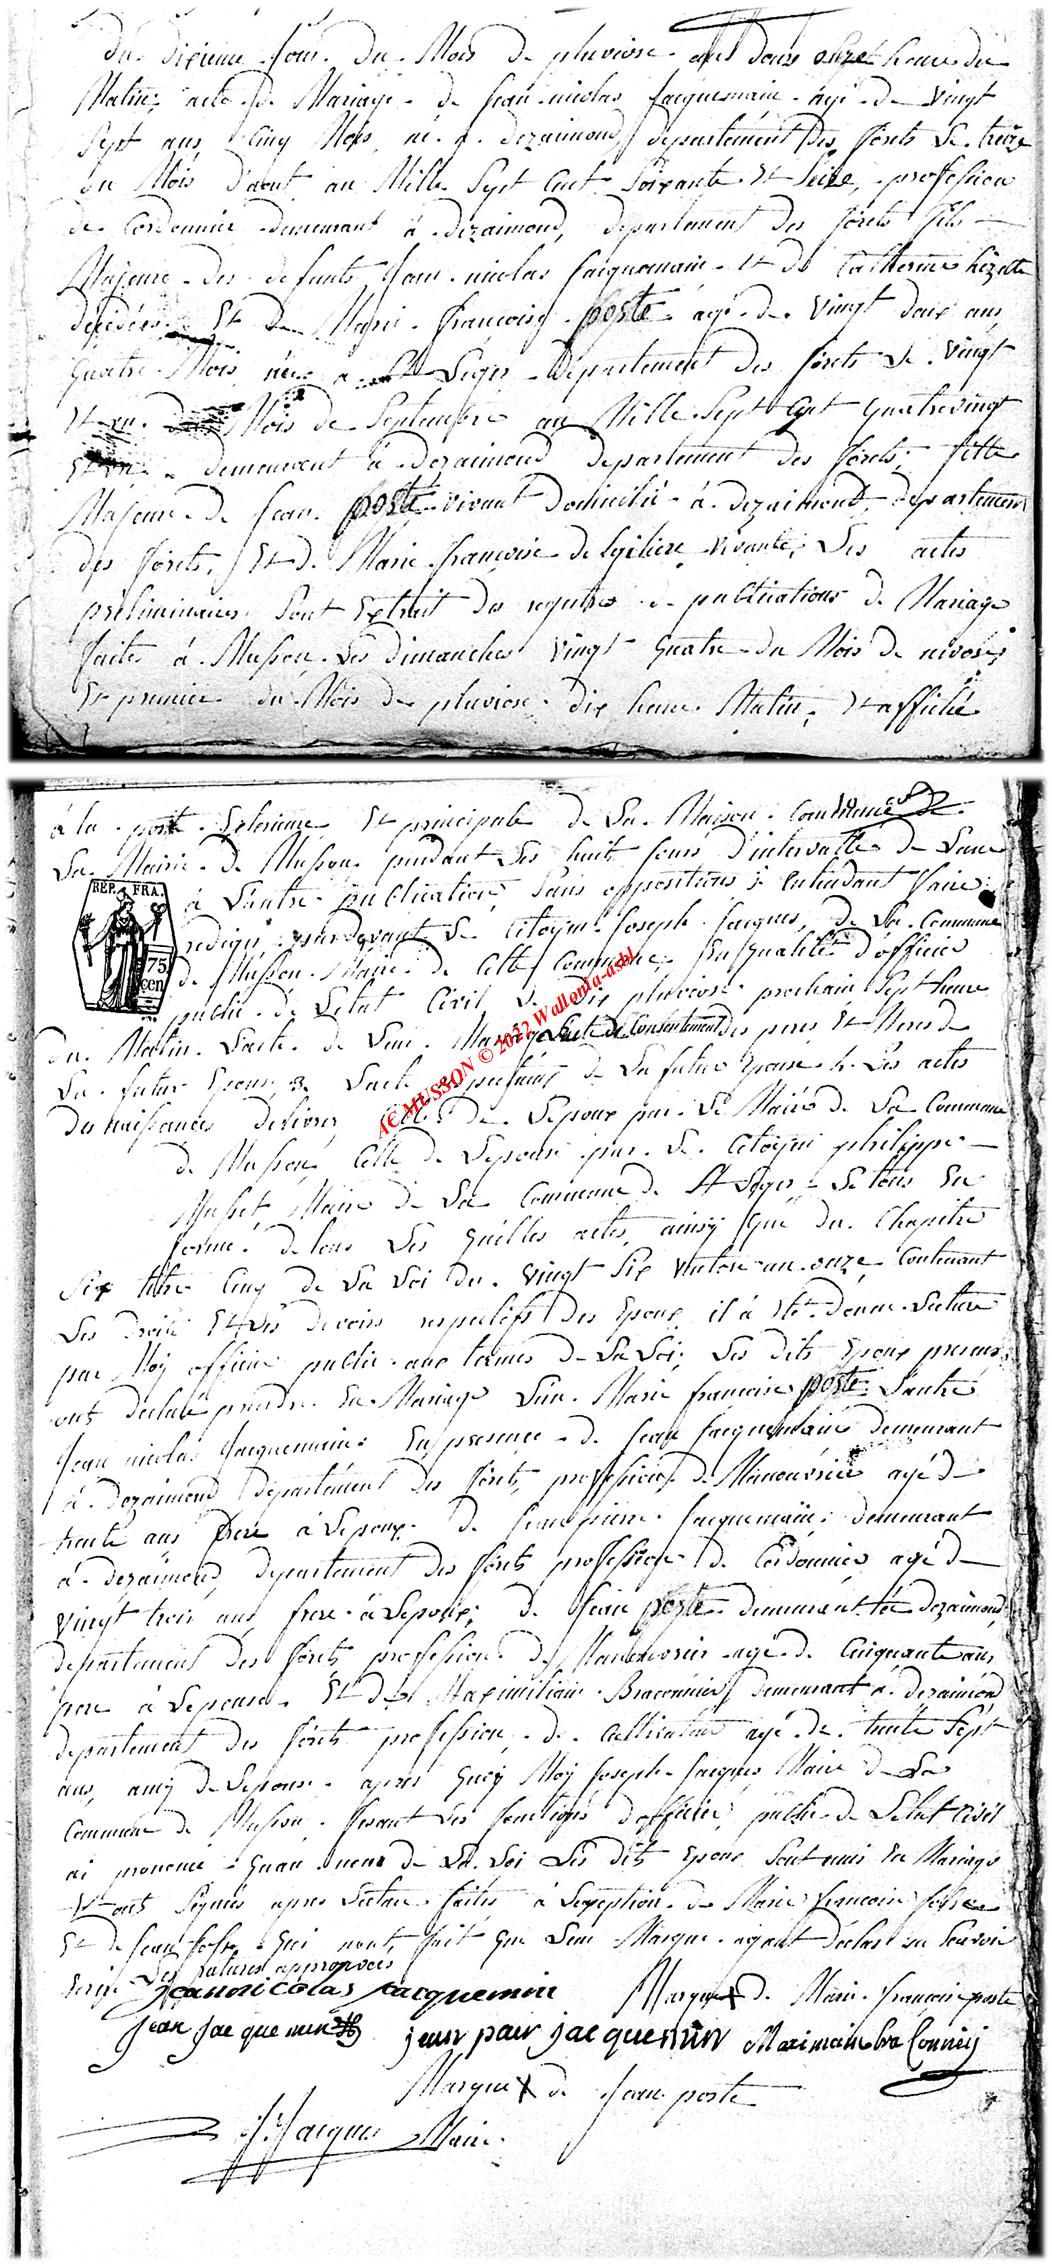 du dixieme jour du Mois de pluviose an douze onze heure du
Matin, acte de Mariage de jean nicolas jacquemain agé de vingt
sept ans, cinq Mois, né à dezaimond departément des forêts le treize
du Mois d'aout an Mille sept cent soixante et seize, profession
de Cordonnier demeurant à dezaimond, departement des forêts fils
Majeure des defunts jean nicolas jacquemain et de Catherine
decédés Et de Marie françoise poste agé de vingt deux ans
quatre Mois née a St Leger departement des forêts le vingt
et un du Mois de Septembre an Mille Sept Cent quatrevingt
et un demeurent à dezaimond departement des forêts, fille
Majeure de jean poste vivant domicilié à dezaimond, departement
des forêts, Et de Marie françoise vivante, Les actes
préliminaires sont Extrait des registres de publications de Mariage
faites à Musson Les dimanches vingt quatre du Mois de nivose,
Et premier du Mois de pluviose dix heure Matin, et affiché
à la porte Exterieure Et principale de La Maison Commune de
La Mairie de Musson pendant Les huit jours d'intervalle de L'une
à L'autre publication, Sans oppositions entendant faire
REP. FRA.
rediger pardevant Le Citoyen joseph jacques, de La Commune
75 cen
de Musson Maire de Cette Commune, En qualité d'officier
public de L'etat Civil le dix pluviose prochain Sept heure
du Matin L'acte de Leur Mariage L'acte de Consentement des peres Et Meres de
La futur Epouse L'acte de La future Epouse Les actes
de naissances delivrez de L'epoux par Le Maire de La Commune
de Musson, Celle de L'epouse par Le Citoyen philippe
Musset Maire de La Commune de St Leger Le tous En
forme, de tous Les quelles actes, ainsy que du Chapitre
Six titre Cinq de La Loi du vingt Six ventose an onze Contenant
Les droits Et Les devoirs respectifs des Epoux, il à eté donné Lecture
par Moy officier public aux termes de La Loi, Les dits Epoux presens
ont declaré prendre En Mariage L'un Marie francoise poste L'autre
jean nicolas jacquemain, En presence de jean jacquemain demeurant
à dezaimond departément des forêts, profession de Manouvrier agé de
trente ans frere à L'epoux de jean pierre jacquemain demeurant
à dezaimond, departement des forêts profession de Cordonnier agé de
vingt trois ans, frere à L'epoux, de jean poste demeurant à dezaimond,
departement des forêts, profession de Manouvrier agé de Cinquante ans
pere à L'epouse Et de Maximiliain Braconnier demeurant à dezaimond
departement des forêts profession de Cultivateur agé de trente Sept
ans, amy de L'epouse apres quoy Moy joseph jacques Maire de La
Commune de Musson fesant Les fonctions d'officier public de L'etat Civil
ai prononcé quau nom de La Loi Les dits Epoux Sont unis En Mariage
Et ont Signés apres Lecture faites à L'exception de Marie francoise poste
Et de jean poste qui n'ont fait que Leur Marque ayant declaré ne Savoir
Ecrire Les ratures approuvées
jeannicolas jacquemin Marque X de Marie francoise poste
jean jacquemin jean pair jacquemin Maximain bra Connieÿ
Marque X de jean poste
J. Jacques Maire
AC MUSSON © 2022 Wallonia-asbl